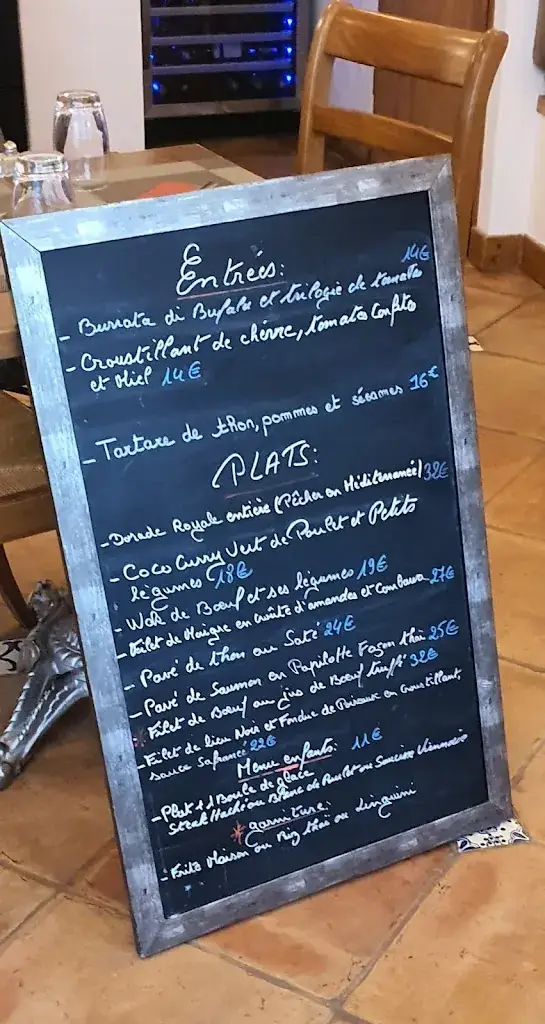 Entrées:
14€
- Burrata di Bufala et trilogie de tomates
- Croustillant de chèvre, tomates Confites
et Miel 14€
- Tartare de thon, pommes et sésames 16€
PLATS:
- Dorade Royale entière (Pêcher en Méditerranée) 32€
- Coco Curry Vert de Poulet et Petits
légumes 18€
- Wok de Boeuf et ses légumes 19€
- Filet de Maigre en croûte d'amandes et Combava 27€
- Pavé de thon au Saté 24€
- Pavé de Saumon en Papillotte Façon thaï 25€
* Filet de Boeuf au jus de Boeuf truffé 32€
- Filet de lieu Noir et Fondue de Poireaux en Croustillant,
sauce Safranée 22€
Menu enfants: 11€
- Plat + 1 Boule de glace
Steak Haché ou Blanc de Poulet ou Saucisse Viennoise
* garniture:
- Frites Maison ou Riz thaï ou Linguini